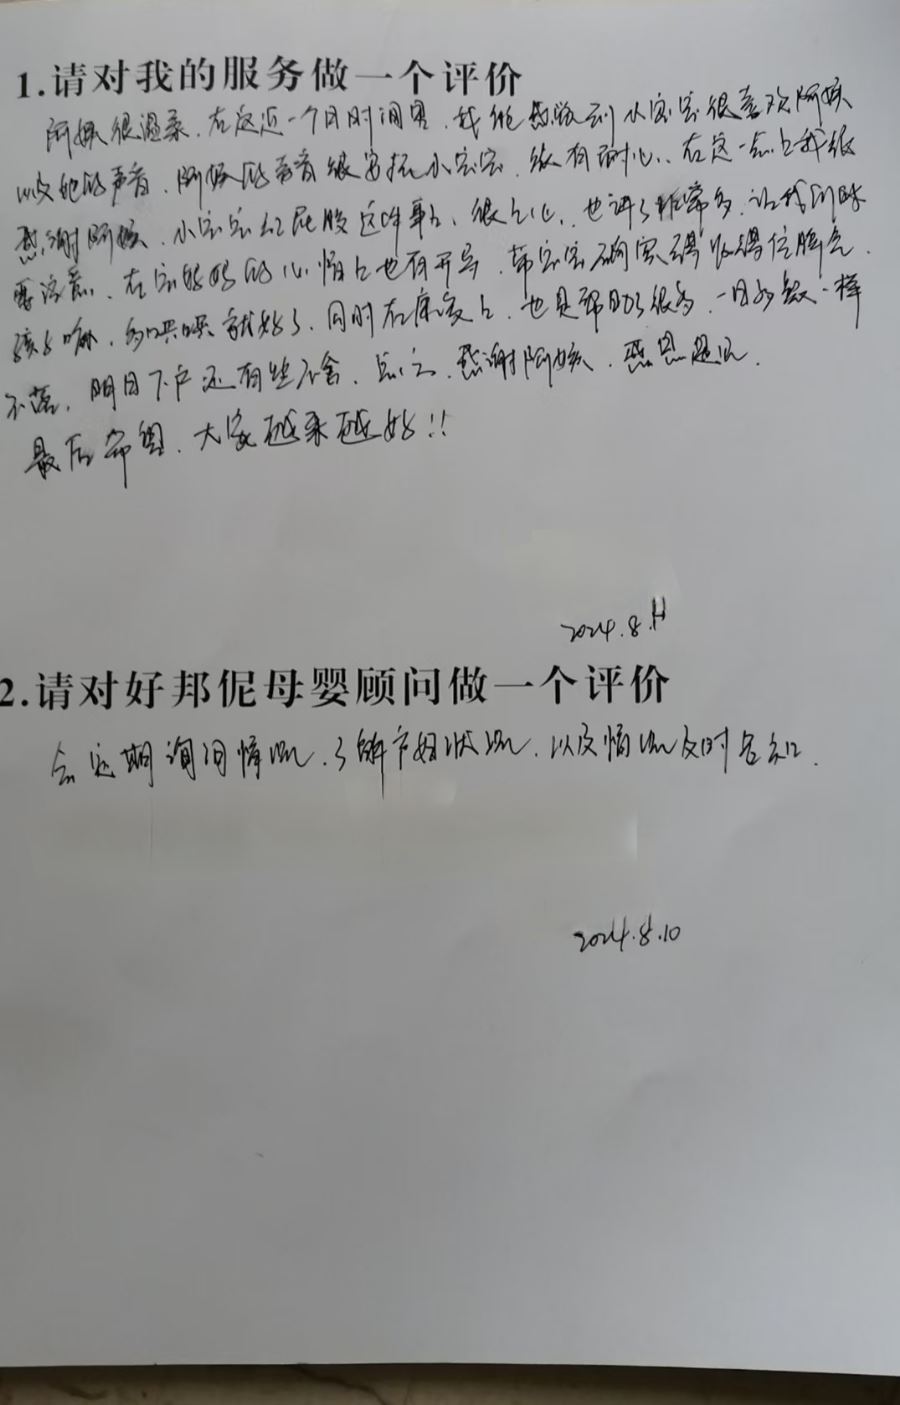 1.请对我的服务做一个评价
阿姨很温柔,在这近一个月时间里,我能感受到小宝宝很喜欢阿姨
以及她的声音,阿姨的声音很安抚小宝宝,很有耐心,在这一点上我很
感谢阿姨,小宝宝红屁股这件事上,很上心,也讲了非常多,让我们时
要注意,在宝妈妈的心情上也有开导,带宝宝确实得
嘛,多哄哄就好了,同时在康复上,也是帮助了很多,一日多餐一样
不落,明日下户还有些不舍,总之,感谢阿姨,感恩遇见.
最后希望,大家越来越好!!
2024.8.
2.请对好邦伲母婴顾问做一个评价
会定期询问情况,了解产妇状况,以及情况及时告知.
2024.8.10